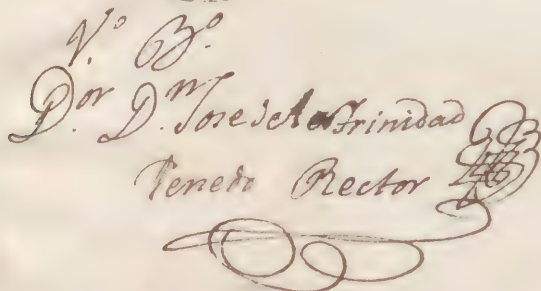 V.º B.º
D.or D.n Jose de la Trinidad
Penedo Rector